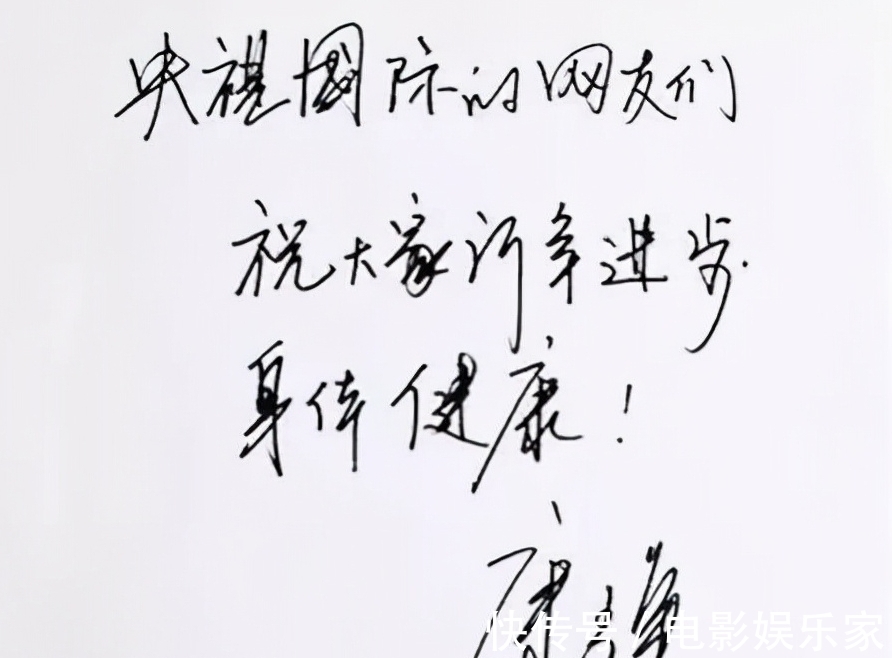 央视國际的网友们
祝大家新年进步.
身体健康!
康
快传号 / 电影娱乐家